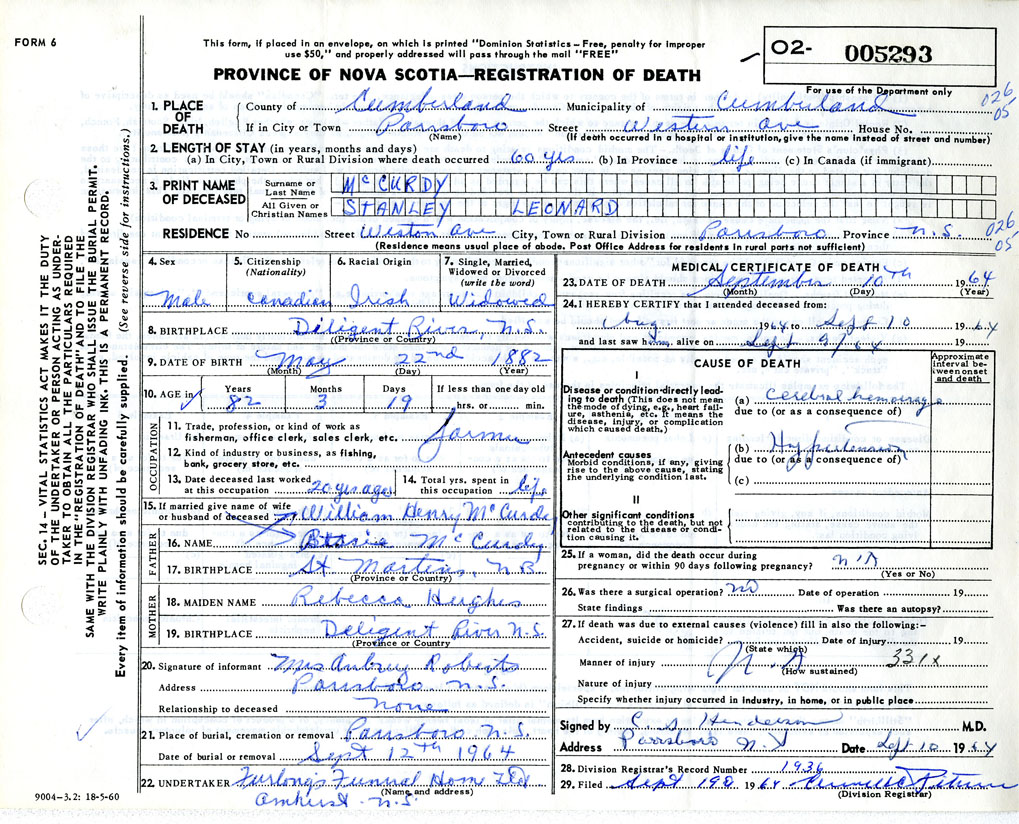 FORM 6
This form, if placed in an envelope, on which is printed "Dominion Statistics – Free, penalty for improper
use $50," and properly addressed will pass through the mail "FREE"
O2- 005293
PROVINCE OF NOVA SCOTIA—REGISTRATION OF DEATH
For use of the Department only
026
05
1. PLACE OF DEATH County of Cumberland Municipality of Cumberland
If in City or Town Parrsboro Street Western Ave House No.
(Name) (If death occurred in a hospital or institution, give the name instead of street and number)
2. LENGTH OF STAY (in years, months and days)
(a) In City, Town or Rural Division where death occurred 60 yrs (b) In Province life (c) In Canada (if immigrant)
3. PRINT NAME OF DECEASED Surname or Last Name McCURDY
All Given or Christian Names STANLEY LEONARD
RESIDENCE No Street Weston Ave City, Town or Rural Division Parrsboro Province N.S.
026
05
(Residence means usual place of abode. Post Office Address for residents in rural parts not sufficient)
4. Sex Male
5. Citizenship (Nationality) Canadian
6. Racial Origin Irish
7. Single, Married, Widowed or Divorced (write the word) Widowed
8. BIRTHPLACE Diligent River, N.S.
(Province or Country)
9. DATE OF BIRTH May 22nd 1882
(Month) (Day) (Year)
10. AGE in Years 82 Months 3 Days 19 If less than one day old hrs. or min.
OCCUPATION
11. Trade, profession, or kind of work as fisherman, office clerk, sales clerk, etc. farmer
12. Kind of industry or business, as fishing, bank, grocery store, etc.
13. Date deceased last worked at this occupation 20 yrs ago
14. Total yrs. spent in this occupation life
15. If married give name of wife or husband of deceased William Henry McCurdy
FATHER
16. NAME Bessie McCurdy
17. BIRTHPLACE St Martins, N B
(Province or Country)
MOTHER
18. MAIDEN NAME Rebecca Hughes
19. BIRTHPLACE Deligent River N.S.
(Province or Country)
20. Signature of informant Mrs Aubrey Roberts
Address Parrsboro. N.S.
Relationship to deceased None
21. Place of burial, cremation or removal Parrsboro N.S.
Date of burial or removal Sept 12th 1964
22. UNDERTAKER Furlong's Funeral Home Ltd
(Name and address)
Amherst N.S.
MEDICAL CERTIFICATE OF DEATH
23. DATE OF DEATH September 10th 1964
(Month) (Day) (Year)
24. I HEREBY CERTIFY that I attended deceased from:
Aug. 1964 to Sept 10 1964
and last saw him alive on Sept 9/64
CAUSE OF DEATH
Approximate interval between onset and death
I
Disease or condition directly leading to death (This does not mean the mode of dying, e.g., heart failure, asthenia, etc. It means the disease, injury, or complication which caused death.)
(a) Cerebral hemorrage
due to (or as a consequence of)
Antecedent causes
Morbid conditions, if any, giving rise to the above cause, stating the underlying condition last.
(b) Hypertension
due to (or as a consequence of)
(c)
II
Other significant conditions contributing to the death, but not related to the disease or condition causing it.
25. If a woman, did the death occur during pregnancy or within 90 days following pregnancy? N A
(Yes or No)
26. Was there a surgical operation? NO Date of operation 19
State findings Was there an autopsy?
27. If death was due to external causes (violence) fill in also the following:-
Accident, suicide or homicide? Date of injury 19
(State which)
Manner of injury N. A 331X
(How sustained)
Nature of injury
Specify whether injury occurred in industry, in home, or in public place
Signed by Henderson M.D.
Address Parrsboro N.S Date Sept 10 1964
28. Division Registrar's Record Number 1936
29. Filed Sept 1964
(Division Registrar)
SEC. 14 – VITAL STATISTICS ACT MAKES IT THE DUTY
OF THE UNDERTAKER OR PERSON ACTING AS UNDER-
TAKER TO OBTAIN ALL THE PARTICULARS REQUIRED
IN THE "REGISTRATION OF DEATH" AND TO FILE THE
SAME WITH THE DIVISION REGISTRAR WHO SHALL ISSUE THE BURIAL PERMIT.
WRITE PLAINLY WITH UNFADING INK. THIS IS A PERMANENT RECORD.
Every item of information should be carefully supplied. (See reverse side for instructions.)
9004-3.2: 18-5-60